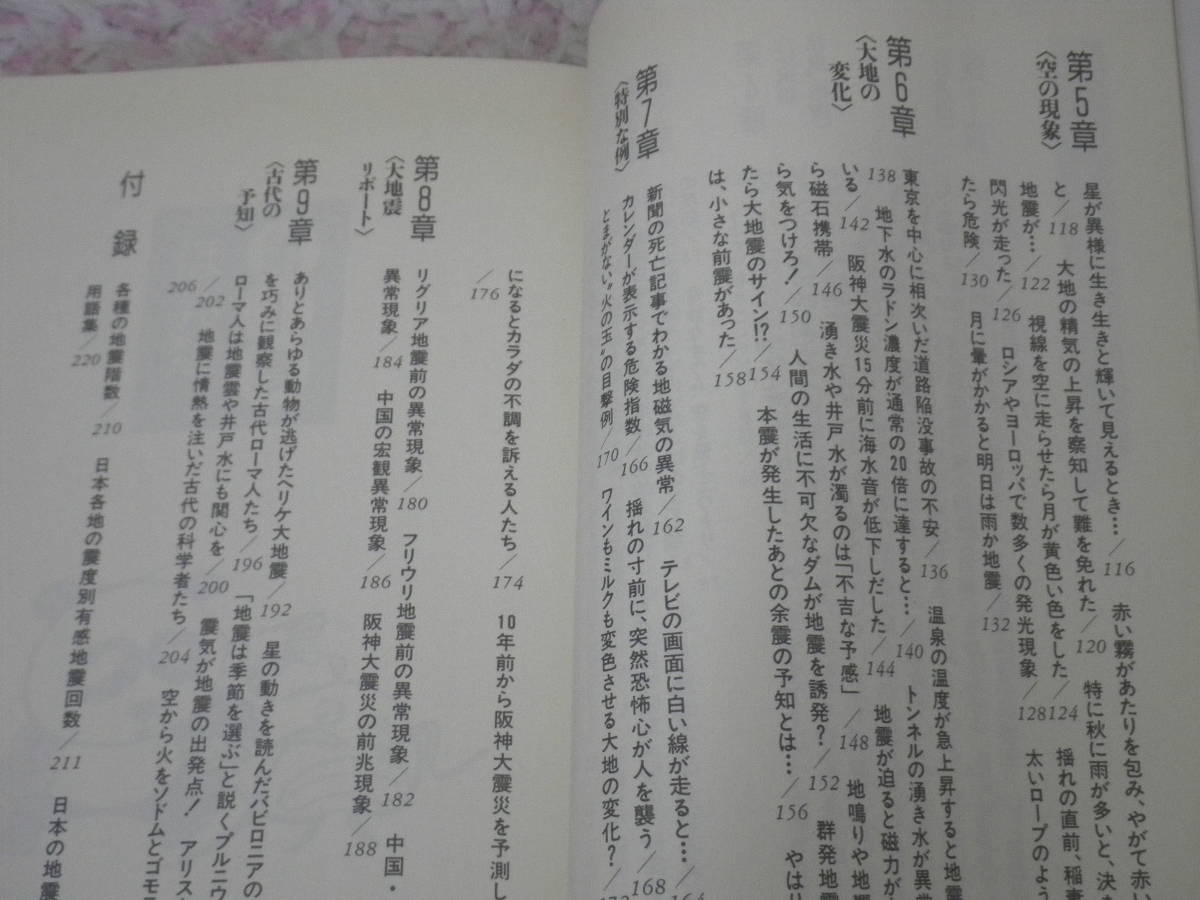 第5章
〈空の現象〉
星が異様に生き生きと輝いて見えるとき…／116 赤い霧があたりを包み、やがて赤い
と／118 大地の精気の上昇を察知して難を免れた／120 特に秋に雨が多いと、決
地震が…／122 視線を空に走らせたら月が黄色い色をした／124 揺れの直前、稲妻
閃光が走った／126 ロシアやヨーロッパで数多くの発光現象／128 太いロープのよう
たら危険／130 月に暈がかかると明日は雨か地震／132
第6章
〈大地の
変化〉
東京を中心に相次いだ道路陥没事故の不安／136 温泉の温度が急上昇すると地震
138 地下水のラドン濃度が通常の20倍に達すると…／140 トンネルの湧き水が異常
いる／142 阪神大震災15分前に海水音が低下しだした／144 地震が迫ると磁力が
ら磁石携帯／146 湧き水や井戸水が濁るのは「不吉な予感」／148 地鳴りや地
ら気をつけろ！／150 人間の生活に不可欠なダムが地震を誘発？／152 群発地震
たら大地震のサイン!?／154 本震が発生したあとの余震の予知とは…／156 やはり
は、小さな前震があった／158
第7章
〈特別な例〉
新聞の死亡記事でわかる地磁気の異常／162 テレビの画面に白い線が走ると…／164
カレンダーが表示する危険指数／166 揺れの寸前に、突然恐怖心が人を襲う／168
とまがない“火の玉”の目撃例／170 ワインもミルクも変色させる大地の変化？／172
になるとカラダの不調を訴える人たち／174 10年前から阪神大震災を予測し
／176
第8章
〈大地震
リポート〉
リグリア地震前の異常現象／180 フリウリ地震前の異常現象／182 中国・
異常現象／184 中国の宏観異常現象／186 阪神大震災の前兆現象／188
第9章
〈古代の
予知〉
ありとあらゆる動物が逃げたヘリケ大地震／192 星の動きを読んだバビロニアの
を巧みに観察した古代ローマ人たち／196 「地震は季節を選ぶ」と説くプルニウ
ローマ人は地震雲や井戸水にも関心を／200 震気が地震の出発点！ アリスト
／202 地震に情熱を注いだ古代の科学者たち／204 空から火をソドムとゴモラ
206
付録
各種の地震階数／210 日本各地の震度別有感地震回数／211 日本の地震
用語集／220